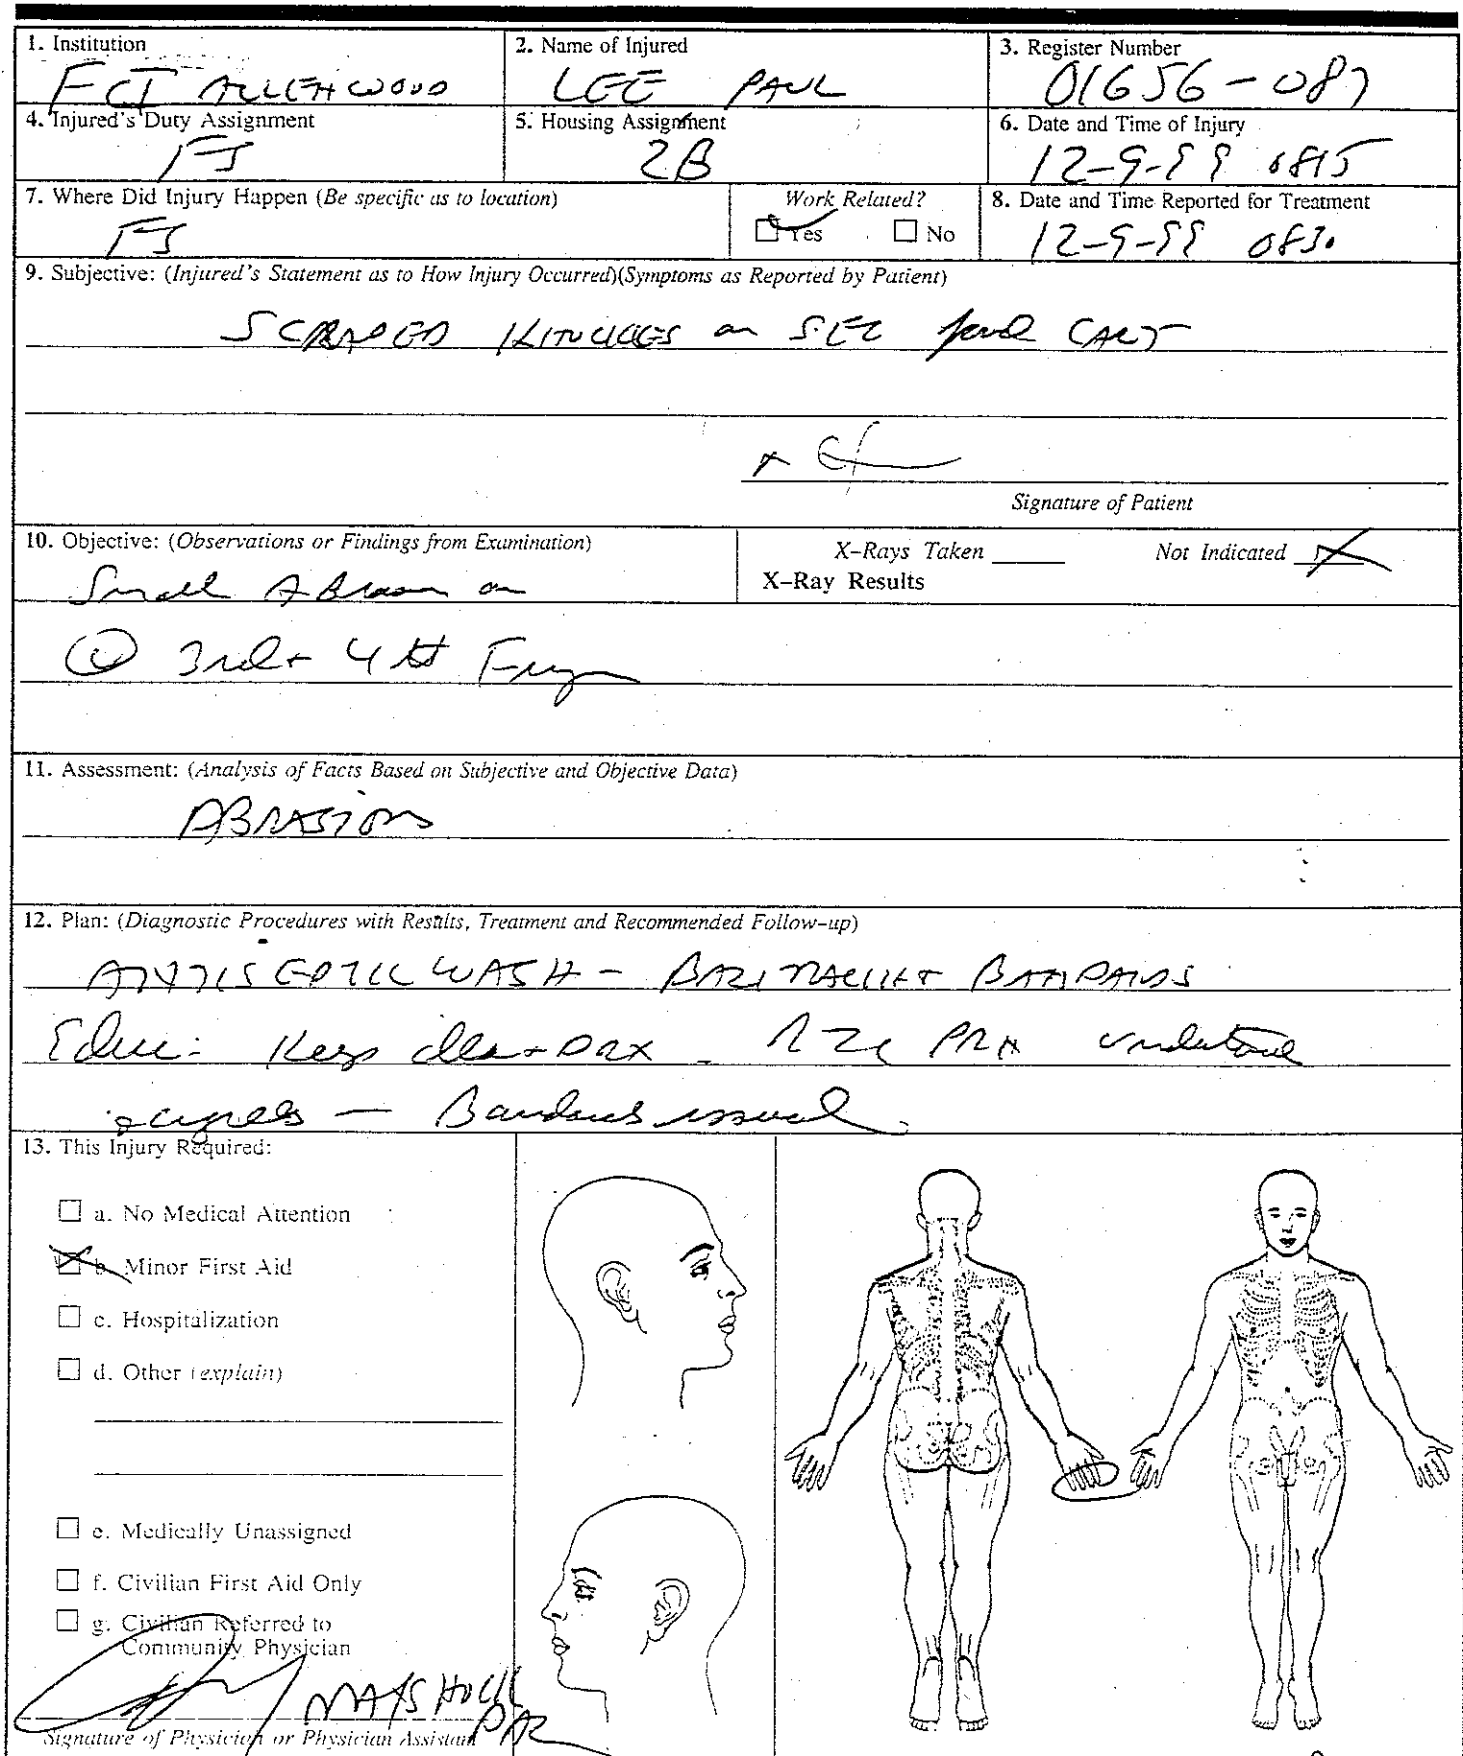 1. Institution
FCI ALLENWOOD
2. Name of Injured
LEE PAUL
3. Register Number
01656-087
4. Injured's Duty Assignment
FS
5. Housing Assignment
2B
6. Date and Time of Injury
12-9-99 0815
7. Where Did Injury Happen (Be specific as to location)
FS
Work Related?
Yes No
8. Date and Time Reported for Treatment
12-9-99 0830
9. Subjective: (Injured's Statement as to How Injury Occurred)(Symptoms as Reported by Patient)
SCRAPED KNUCKLES on food CART
Signature of Patient
10. Objective: (Observations or Findings from Examination)
X-Rays Taken Not Indicated X
X-Ray Results
Small ABrasion on
3rd + 4th Finger
11. Assessment: (Analysis of Facts Based on Subjective and Objective Data)
ABRASIONS
12. Plan: (Diagnostic Procedures with Results, Treatment and Recommended Follow-up)
ANTISEPTIC WASH - BACITRACIN + BANDAIDS
Educ: Keep clean + DRY - RTC PRN understand
& agrees - Bandaids issued
13. This Injury Required:
a. No Medical Attention
b. Minor First Aid
c. Hospitalization
d. Other (explain)
e. Medically Unassigned
f. Civilian First Aid Only
g. Civilian Referred to
Community Physician
Signature of Physician or Physician Assistant